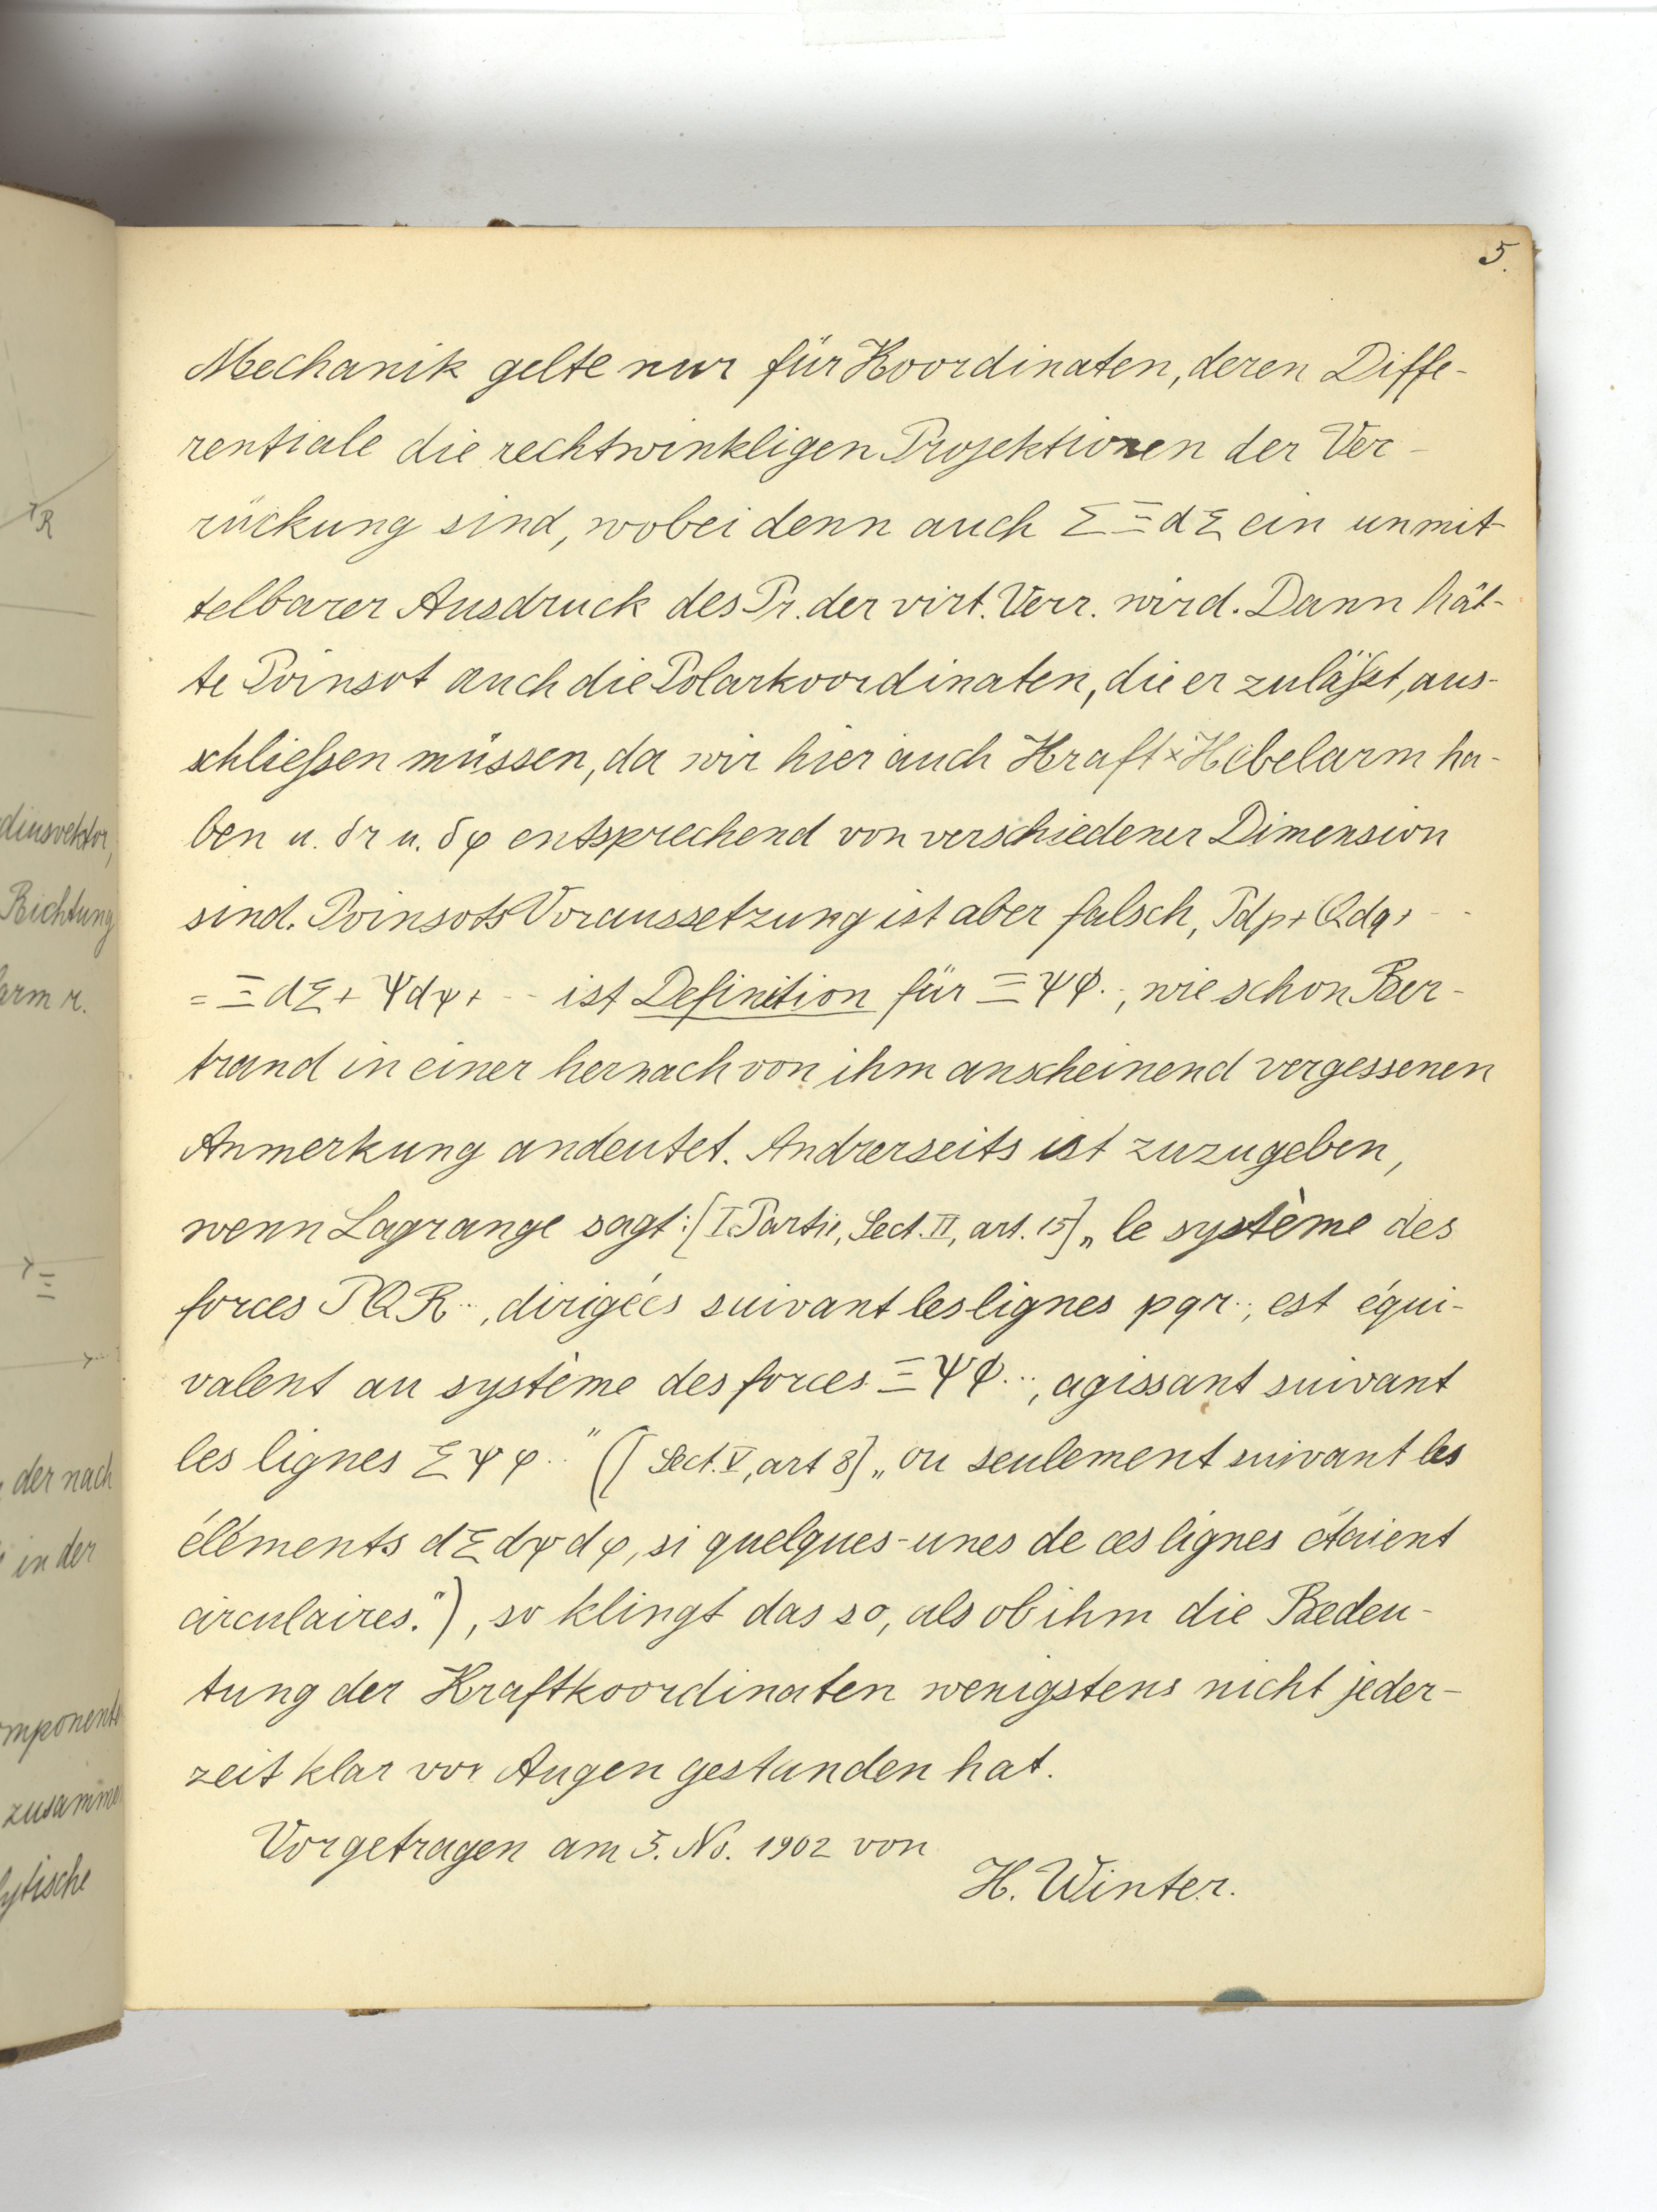 5.
Mechanik gelte nur für Koordinaten, deren Diffe-
rentiale die rechtwinkligen Projektionen der Ver-
rückung sind, wobei denn auch Σ Ξ dξ ein unmit-
telbarer Ausdruck des Pr. der virt. Verr. wird. Dann hät-
te Poinsot auch die Polarkoordinaten, die er zuläßt, aus-
schließen müssen, da wir hier auch Kraft × Hebelarm ha-
ben u. δr u. δφ entsprechend von verschiedener Dimension
sind. Poinsots Voraussetzung ist aber falsch, Pdp + Qdq + - -
= Ξ dξ + Ψdψ + - - ist Definition für Ξ Ψ Φ.., wie schon Ber-
trand in einer hernach von ihm anscheinend vergessenen
Anmerkung andeutet. Andrerseits ist zuzugeben,
wenn Lagrange sagt: [I. Partie, Sect. II, art. 15] „le système des
forces P Q R .., dirigées suivant les lignes p q r .., est équi-
valent au système des forces Ξ Ψ Φ ..., agissant suivant
les lignes ξ ψ φ .." ([Sect. V, art 8] „ou seulement suivant les
éléments dξ dψ dφ, si quelques-unes de ces lignes étaient
circulaires."), so klingt das so, als ob ihm die Bedeu-
tung der Kraftkoordinaten wenigstens nicht jeder-
zeit klar vor Augen gestanden hat.
Vorgetragen am 5. No. 1902 von
H. Winter.
R
Richtung
arm r.
Ξ
der nach
in der
zusamme